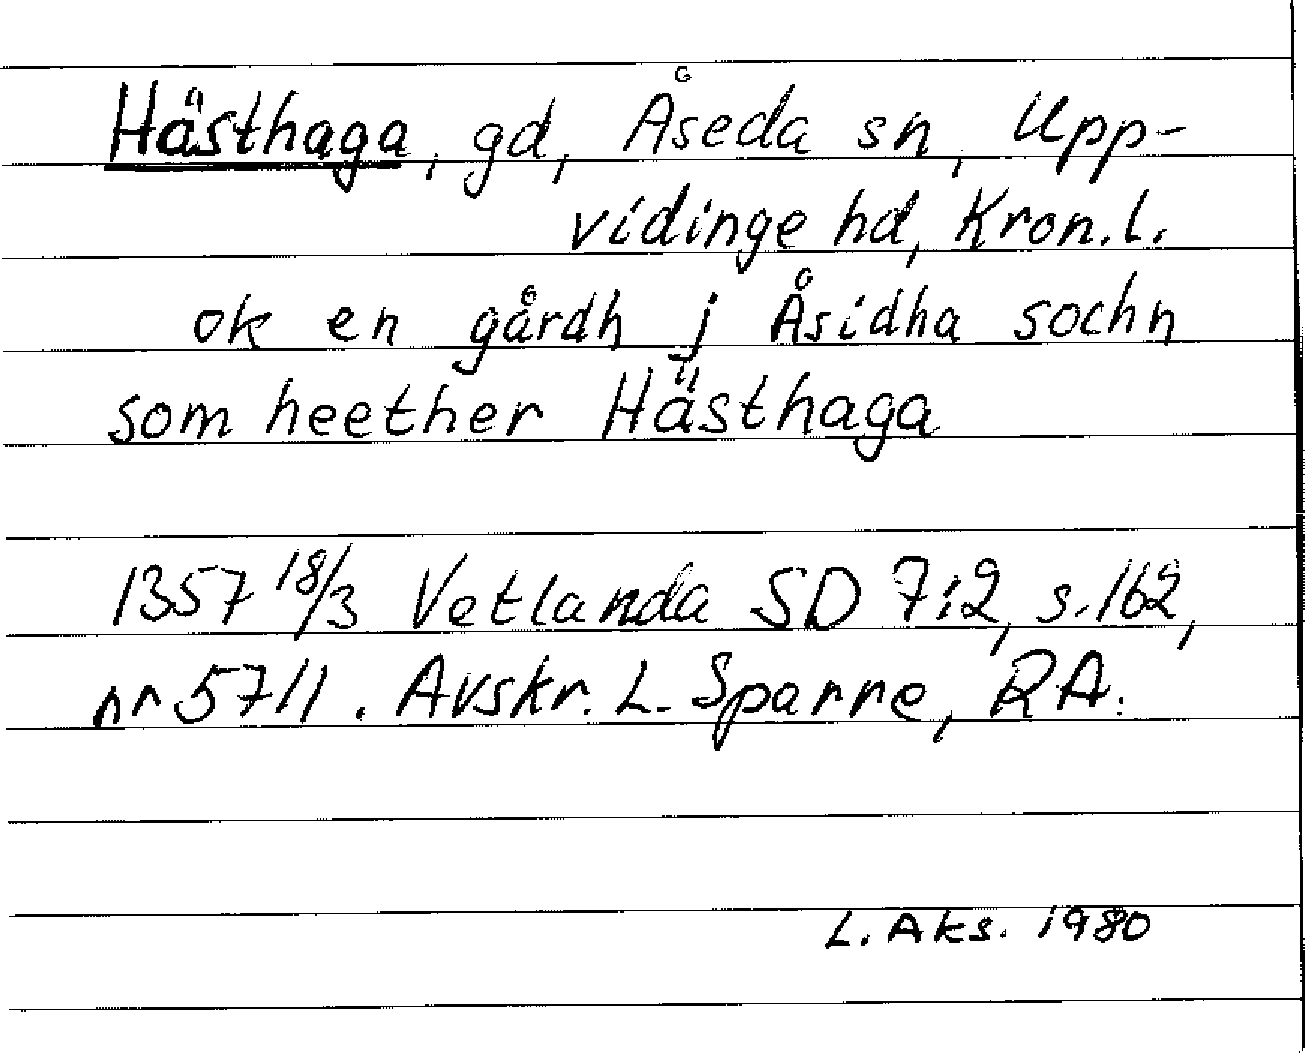 Hästhaga, gd, Åseda sn, Upp-
vidinge hd, Kron.l.
ok en gårdh j Åsidha sochn
som heether Hästhaga
1357 18/3 Vetlanda SD 7:2, s.162,
nr 5711. Avskr. L. Sparre, RA.
L. Aks. 1980